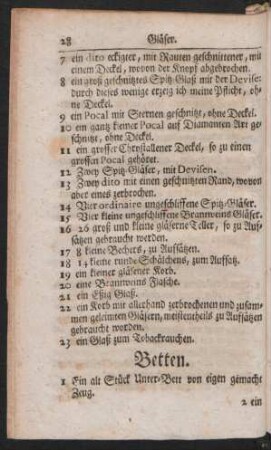 28 Gläser.
7 ein dito eckigter, mit Rauten geschnittener, mit
einem Deckel, wovon der Knopf abgebrochen.
8 ein groß geschnitztes Spitz-Glaß mit der Devise:
durch dieses wenige erzeig ich meine Pflicht, oh-
ne Deckel.
9 ein Pocal mit Sternen geschnitzt, ohne Deckel.
10 ein gantz kleiner Pocal auf Diamanten Art ge-
schnitzt, ohne Deckel.
11 ein grosser Chrystallener Deckel, so zu einen
grossen Pocal gehöret.
12 Zwey Spitz-Gläser, mit Devisen.
13 Zwey dito mit einen geschnitzten Rand, wovon
aber eines zerbrochen.
14 Vier ordinaire ungeschliffene Spitz-Gläser.
15 Vier kleine ungeschliffene Brannweins Gläser.
16 26 groß und kleine gläserne Teller, so zu Auf-
sätzen gebraucht werden.
17 8 kleine Bechers, zu Aufsätzen.
18 14 kleine runde Schälchens, zum Aufsatz.
19 ein kleiner gläsener Korb.
20 eine Brannweins Flasche.
21 ein Eßig Glaß.
22 ein Korb mit allerhand zerbrochenen und zusam-
men geleimten Gläsern, meistentheils zu Aufsätzen
gebraucht worden.
23 ein Glaß zum Tobackrauchen.
Betten.
1 Ein alt Stück Unter-Bett von eigen gemacht
Zeug.
2 ein